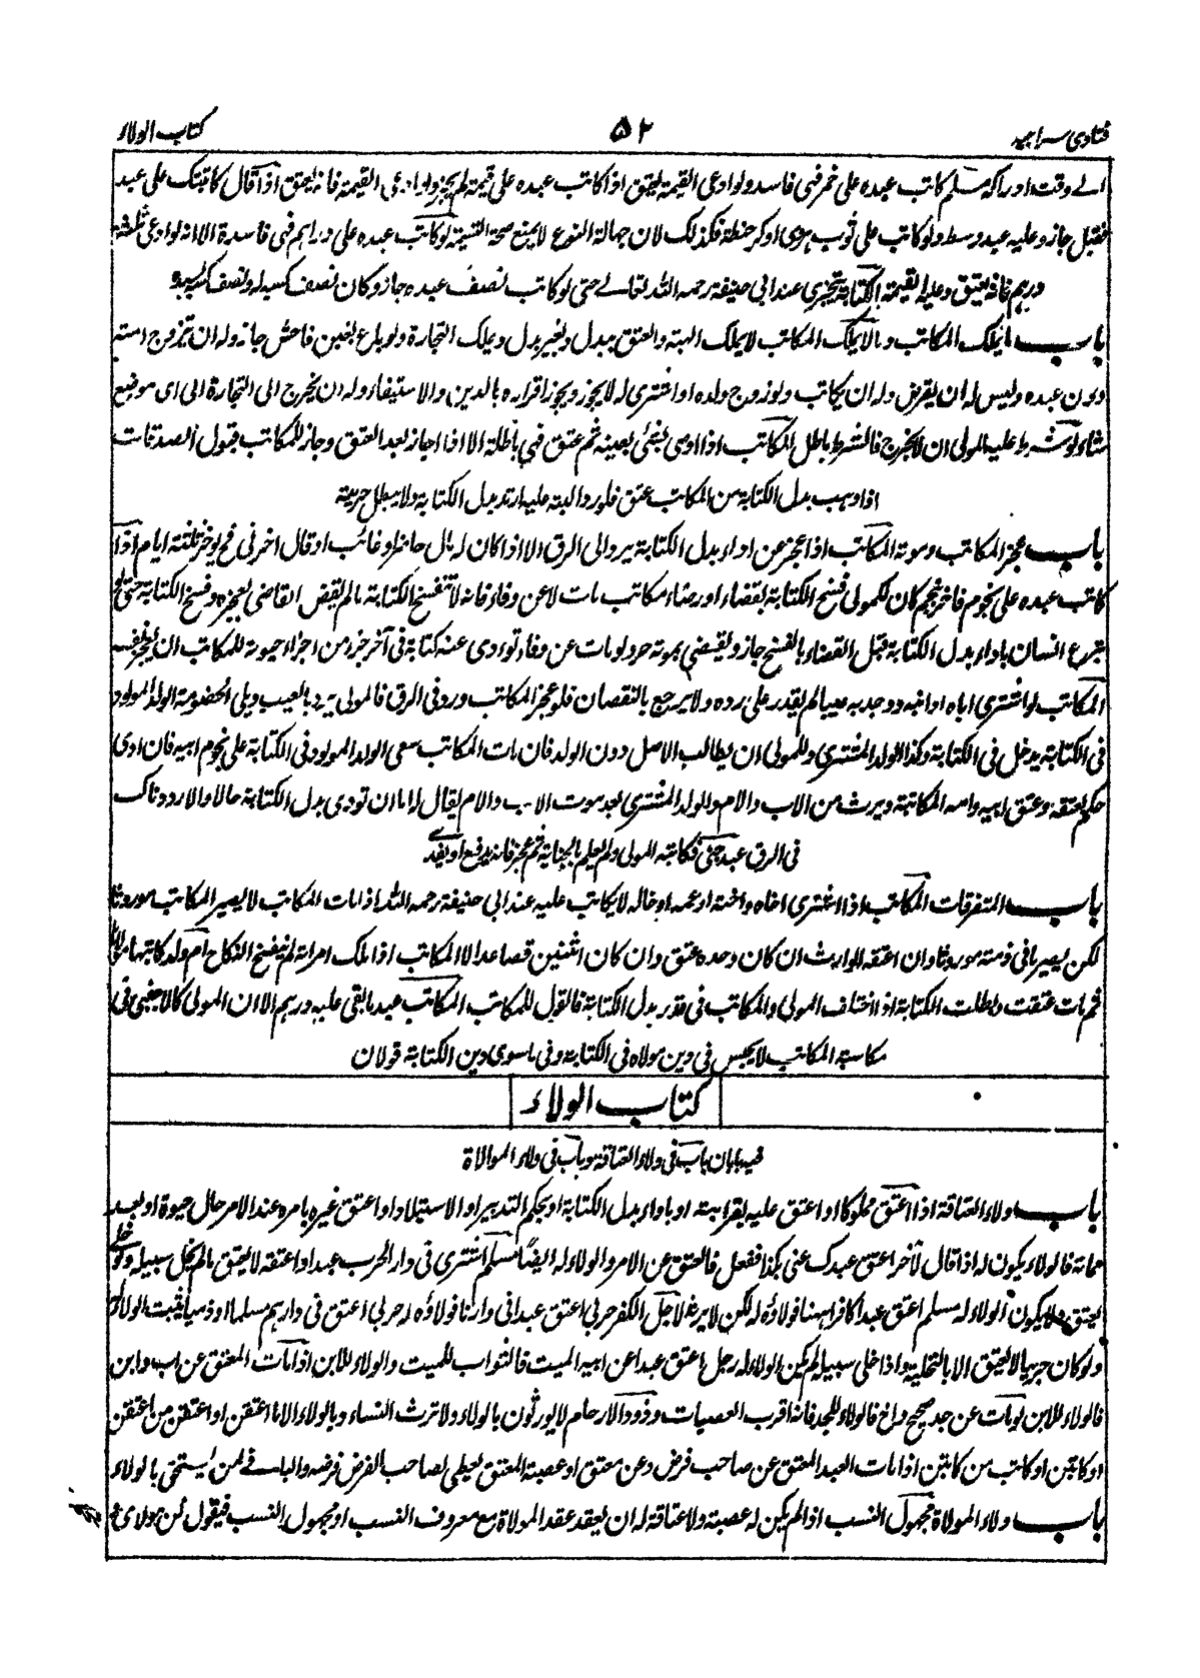 فتاوی سراجیہ ۵۲ کتاب الولاء
الی وقت ادراکہ مسلم کاتب عبده علی خمر فہی فاسد ولو ادی القیمۃ یعتق اذا کاتب عبده علی قیمۃ لم یجز ولو ادی القیمۃ فانہ یعتق اذا قال کاتبتک علی عبد
فقبل جاز وعلیہ عبد وسط ولو کاتب علی ثوب ہروی او کر حنطۃ فکذلک لان جہالۃ النوع لا یمنع صحۃ التسمیۃ لو کاتب عبده علی دراہم فہی فاسدة الا انہ لو ادی ثلثۃ
درہم فانہ یعتق وعلیہ القیمۃ الکتابۃ یتجزی عند ابی حنیفۃ رحمہ اللہ تعالے حتی لو کاتب نصف عبده جاز وکان نصف کسبہ لہ ونصف کسبہ
باب ما یملک المکاتب وما لا یملک المکاتب لا یملک الہبۃ والعتق ببدل وبغیر بدل ویملک التجارة ولو باع بغبن فاحش جاز ولہ ان یزوج امتہ
دون عبده ولیس لہ ان یقرض ولہ ان یکاتب ولو زوج ولده او اشتری لہ لا یجوز ویجوز اقراره بالدین والاستیفاء ولہ ان یخرج الی التجارة الی ای موضع
شاء لو شرط علیہ المولی ان لا یخرج فالشرط باطل المکاتب اذا اوصی بشیٔ بعینہ ثم عتق فہی باطلۃ الا اذا اجاز بعد العتق وجاز للمکاتب قبول الصدقات
اذا وہب بدل الکتابۃ من المکاتب عتق فلو رد الہبۃ علیہ ارتد بدل الکتابۃ ولا یبطل حریتہ
باب عجز المکاتب وموتہ المکاتب اذا عجز عن اداء بدل الکتابۃ یرد الی الرق الا اذا کان لہ مال حاضر او غائب او قال اخرنی فح یوخر ثلثۃ ایام اذا
کاتب عبده علی نجوم فاخر نجم کان للمولی فسخ الکتابۃ بقضاء او رضاء مکاتب مات لا عن وفاء فانہ لا تنفسخ الکتابۃ ما لم یقض القاضی بعجزه وفسخ الکتابۃ حتی لو
تبرع انسان باداء بدل الکتابۃ قبل القضاء بالفسخ جاز ویقضی بموتہ حرا ولو مات عن وفاء تودی عنہ کتابۃ فی آخر جزء من اجزاء حیوتہ للمکاتب ان
المکاتب لو اشتری اباه او ابنہ ووجد بہ عیبا لم یقدر علی رده ولا یرجع بالنقصان فلو عجز المکاتب ورد فی الرق فالمولی یرد بالعیب ویلی الخصومۃ الولد المولود
فی الکتابۃ یدخل فی الکتابۃ وکذا الولد المشتری وللمولی ان یطالب الاصل دون الولد فان مات المکاتب سعی الولد المولود فی الکتابۃ علی نجوم ابیہ فان ادی
حکم بعتقہ وعتق ابیہ وامہ المکاتبۃ ویرث من الاب والام والولد المشتری بعد موت الاب والام یقال لہ اما ان تودی بدل الکتابۃ حالا والا رددناک
فی الرق عبد جنی فکاتبہ المولی ولم یعلم بالجنایۃ ثم عجز فانہ یدفع او یفدے
باب المتفرقات المکاتب اذا اشتری اخاه واختہ او عمہ او خالہ لا یکاتب علیہ عند ابی حنیفۃ رحمہ اللہ اذا مات المکاتب لا یصیر المکاتب موروثا
لکن یصیر ما فی ذمتہ موروثا وان اعتقہ الوارث ان کان وحده عتق وان کان اثنین فصاعدا لا المکاتب اذا ملک امراتہ لم ینفسخ النکاح ام ولد کاتبہا مولاہا
ثم مات عتقت وبطلت الکتابۃ اذا اختلف المولی والمکاتب فی قدر بدل الکتابۃ فالقول للمکاتب المکاتب عبد ما بقی علیہ درہم الا ان المولی کالاجنبی فی
مکاسبہ المکاتب لا یحبس فی دین مولاه فی الکتابۃ وفی ما سوی دین الکتابۃ قولان
کتاب الولاء
فیہ بابان باب فی ولاء العتاقۃ وباب فی ولاء الموالاة
باب ولاء العتاقۃ اذا اعتق مملوکا او اعتق علیہ بقرابتہ او باداء بدل الکتابۃ او بحکم التدبیر او الاستیلاد او اعتق غیره بامره عند الامر حال حیوة او بعد
مماتہ فالولاء یکون لہ اذا قال لآخر اعتق عبدک عنی بکذا ففعل فالعتق عن الامر والولاء لہ ایضا مسلم اشتری فی دار الحرب عبدا واعتقہ لا یعتق ما لم یخل سبیلہ
یعتق ولا یکون الولاء لہ مسلم اعتق عبدا کافرا ہہنا فولاؤه لہ لکن لا یرثہ لاجل الکفر حربی اعتق عبدا فی دارنا فولاؤه لہ حربی اعتق فی دارہم مسلما او ذمیا یثبت الولاء
ولو کان حربیا لا یعتق الا بالتخلیۃ واذا خلی سبیلہ لم یکن الولاء لہ رجل اعتق عبدا عن ابیہ المیت فالثواب للمیت والولاء للابن اذا مات المعتق عن اب وابن
فالولاء للابن لو مات عن جد صحیح واخ فالولاء للجد فانہ اقرب العصبات وذوو الارحام لا یورثون بالولاء ولا ترث النساء وبالولاء الا ما اعتقن او اعتق من اعتقن
او کاتبن او کاتب من کاتبن اذا مات العبد المعتق عن صاحب فرض وعن معتق او عصبۃ المعتق یعطی لصاحب الفرض فرضہ والباقے لمن یستحق بالولاء
باب ولاء الموالاة مجہول النسب اذا لم یکن لہ عصبۃ ولا عتاقۃ لہ ان یعقد عقد الموالاة مع معروف النسب او مجہول النسب فیقول انت مولای